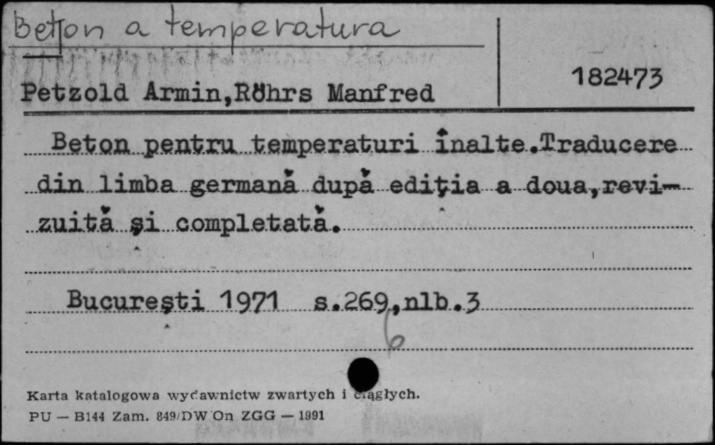 Beton a temperatura
182473
Petzold Armin,Röhrs Manfred
Beton pentru temperaturi înalte.Traducere
din limba germană după ediţia a doua,revi-
zuită şi completată.
Bucureşti 1971 s.269,nlb.3
6
Karta katalogowa wydawnictw zwartych i ciągłych.
PU — B144 Zam. 849/DW On ZGG — 1991